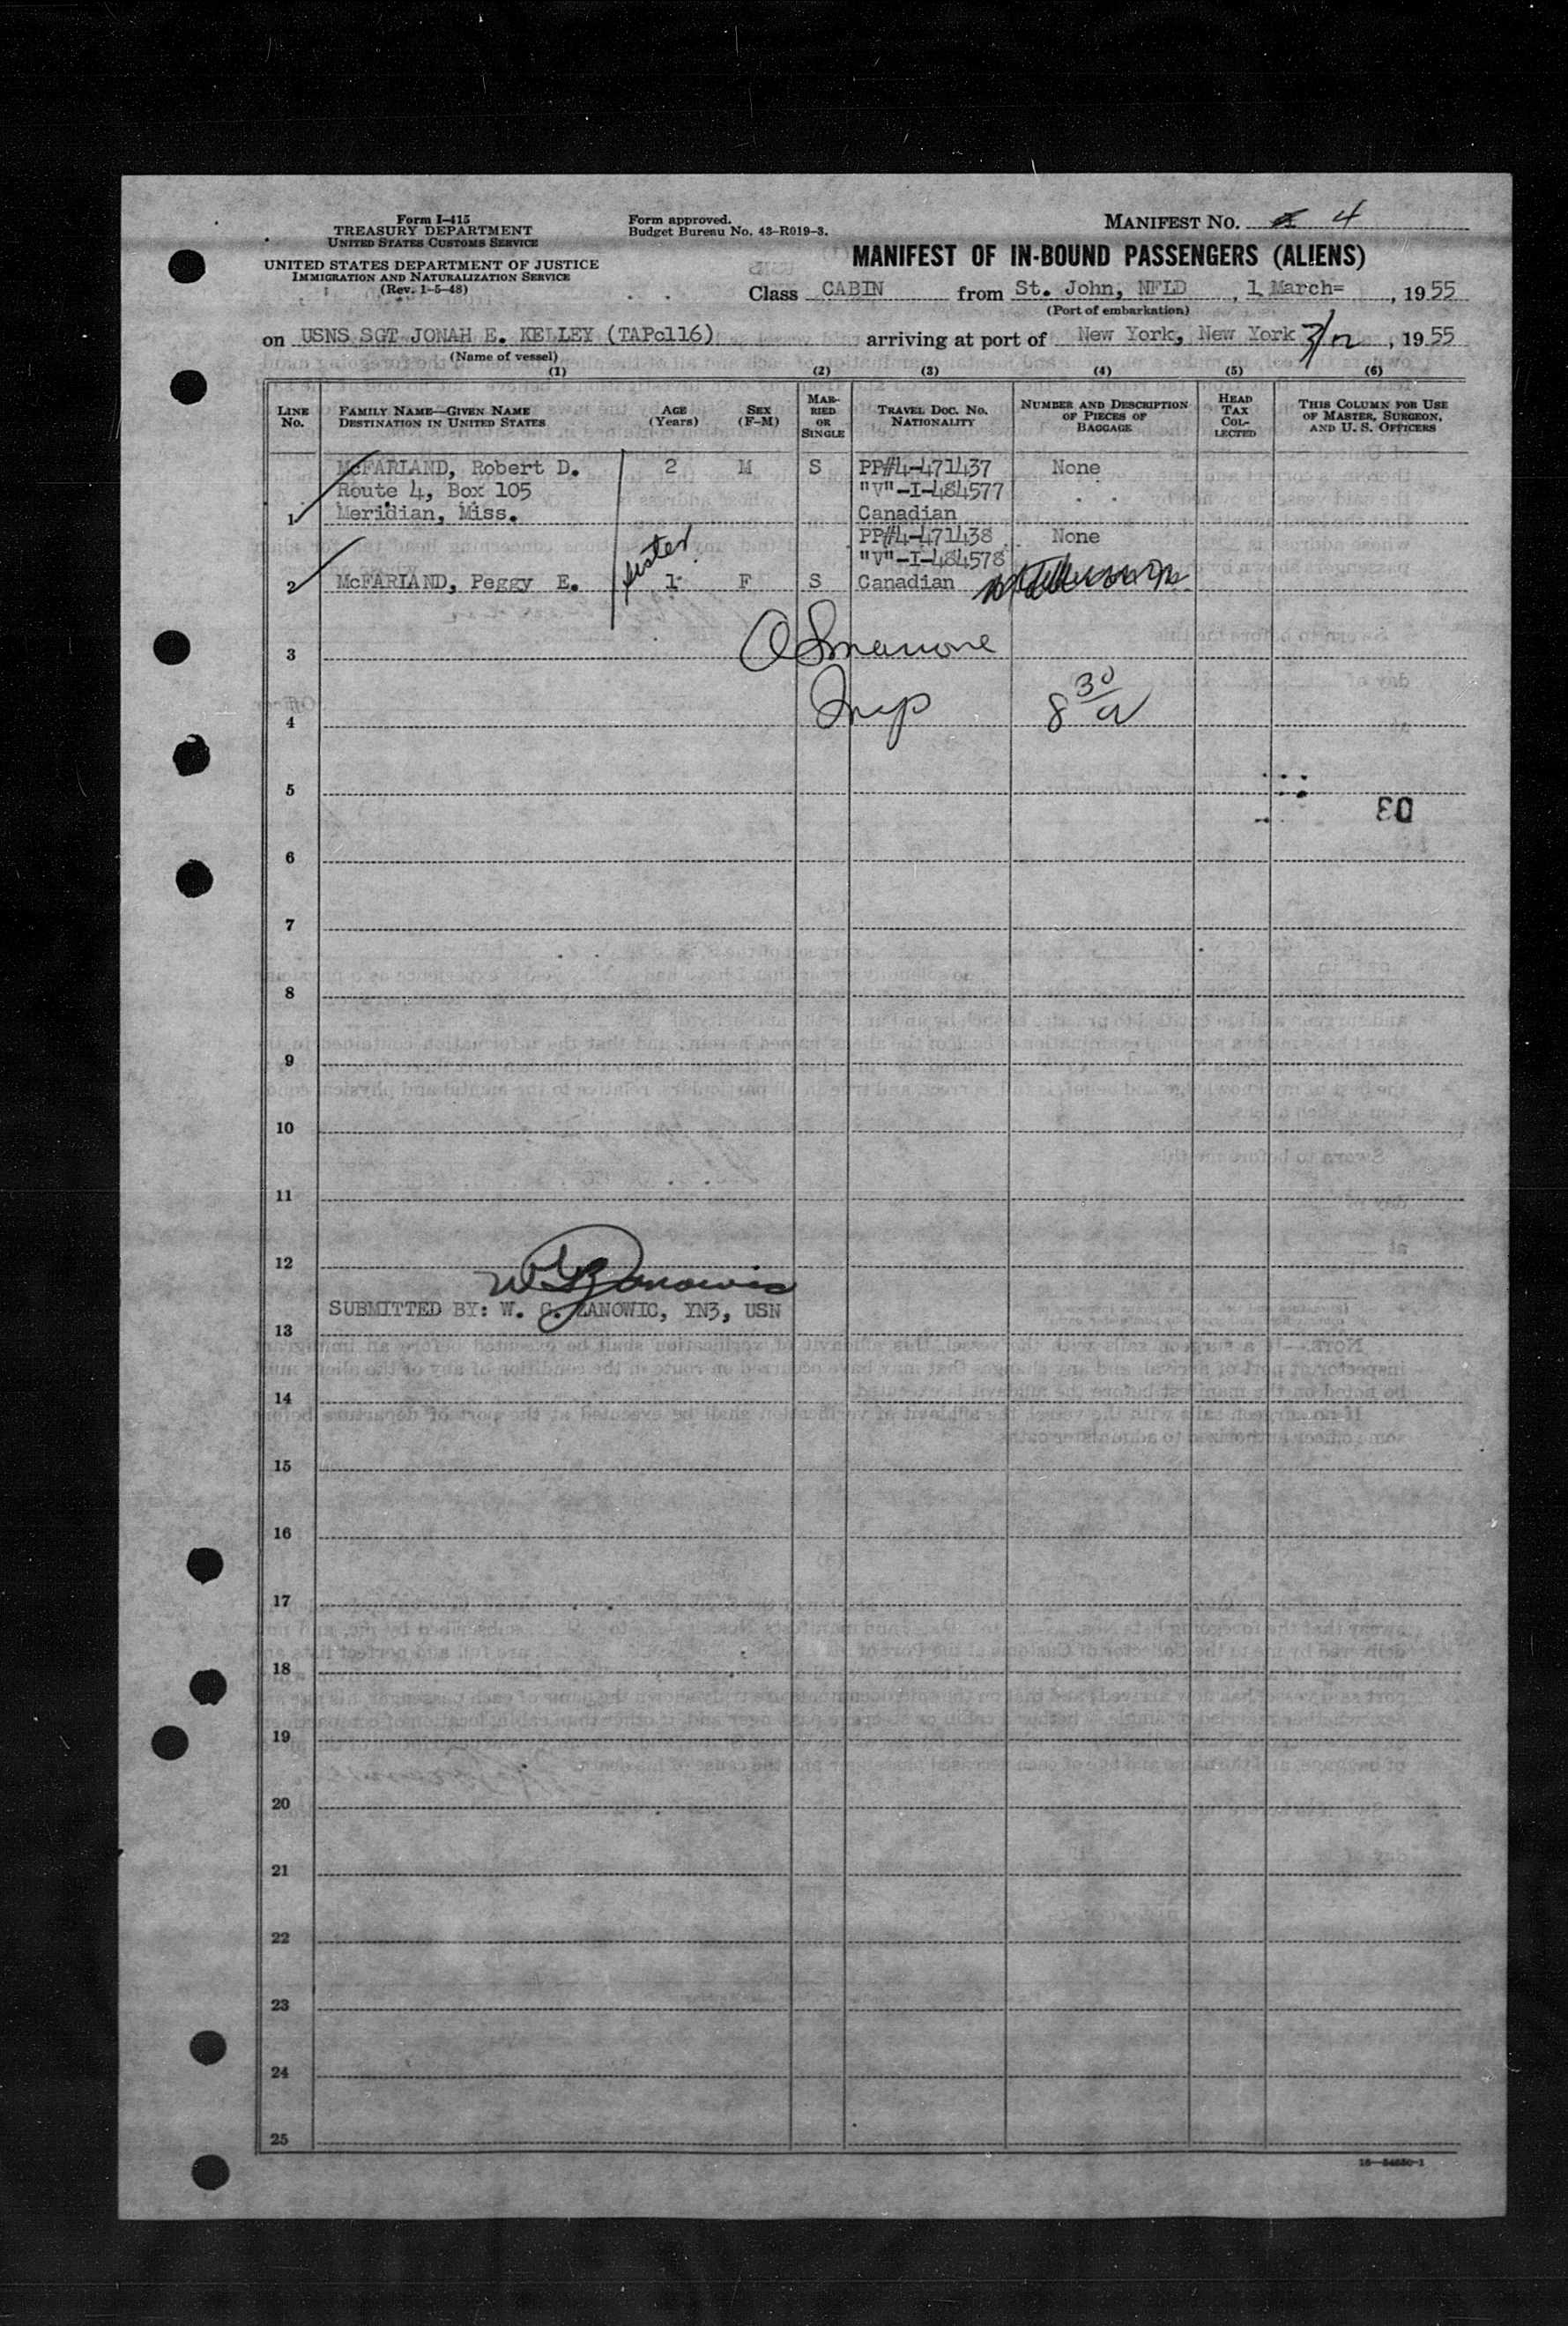 Form I-415
TREASURY DEPARTMENT
UNITED STATES CUSTOMS SERVICE
UNITED STATES DEPARTMENT OF JUSTICE
IMMIGRATION AND NATURALIZATION SERVICE
(Rev. 1-5-48)
Form approved.
Budget Bureau No. 43-R019-3.
MANIFEST NO. 4
MANIFEST OF IN-BOUND PASSENGERS (ALIENS)
Class CABIN from St. John, NFLD, 1 March=, 1955
(Port of embarkation)
on USNS SGT JONAH E. KELLEY (TAPc116) arriving at port of New York, New York 3/12, 1955
(Name of vessel)
(1) (2) (3) (4) (5) (6)
LINE No.
FAMILY NAME—GIVEN NAME
DESTINATION IN UNITED STATES
AGE (Years)
SEX (F-M)
MARRIED OR SINGLE
TRAVEL DOC. NO. NATIONALITY
NUMBER AND DESCRIPTION OF PIECES OF BAGGAGE
HEAD TAX COLLECTED
THIS COLUMN FOR USE OF MASTER, SURGEON, AND U. S. OFFICERS
McFARLAND, Robert D. 2 M S PP#4-471437 None
Route 4, Box 105 "V"-I-484577
1 Meridian, Miss. Canadian
sister PP#4-471438 None
"V"-I-484578
2 McFARLAND, Peggy E. 1 F S Canadian
3
4 Insp 8 30/a
5
03
6
7
8
9
10
11
12
SUBMITTED BY: W. G. ZANOWIC, YN3, USN
13
14
15
16
17
18
19
20
21
22
23
24
25